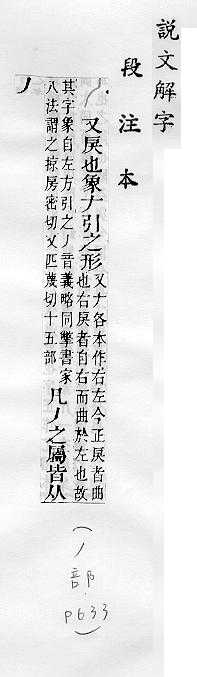 說文解字
段注本
丿 又戾也象𠂇引之形
又𠂇各本作右左今正戾者曲
也右戾者自右而曲於左也故
其字象自左方引之丿音義略同擊書家
八法謂之掠房密切又匹蔑切十五部
凡丿之屬皆从
丿
(丿部. P633)